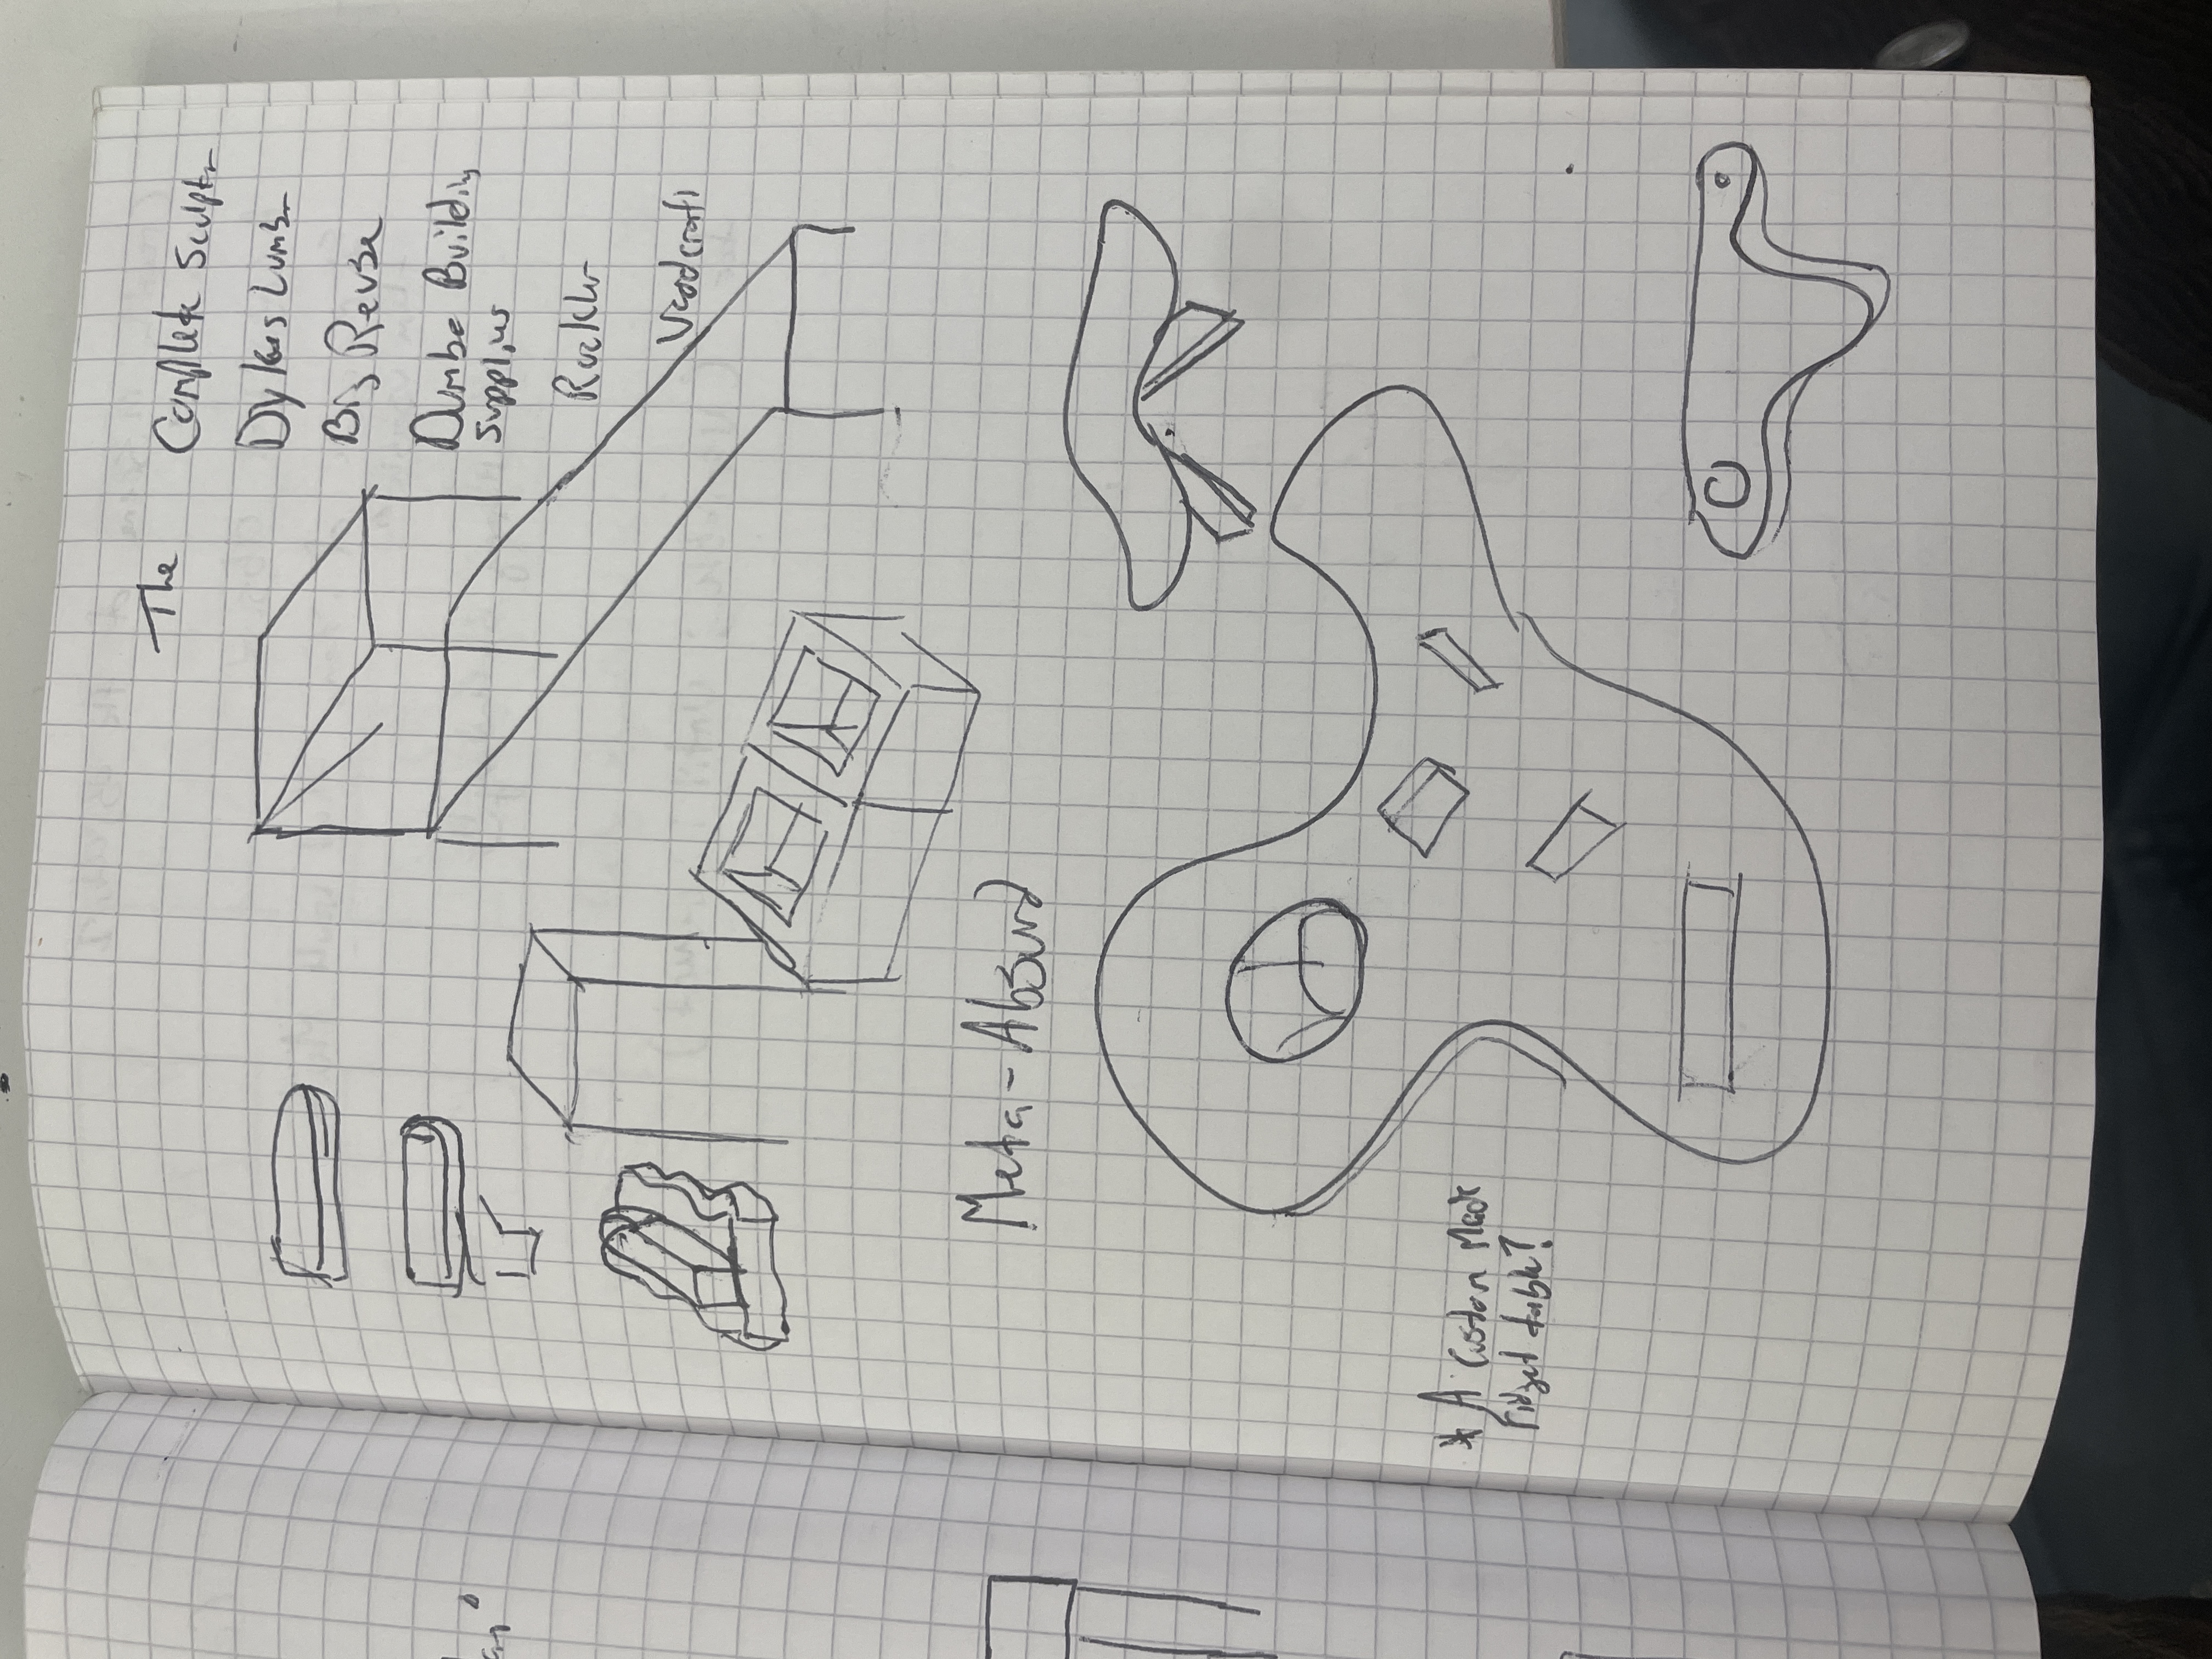 The Complete Sculptr
Dykes Lumbr
Big Reuse
Dumbo Building
Supplies
Rocklr
Woodcraft
Meta-Absurd
* A Custom Made
Fidget table?